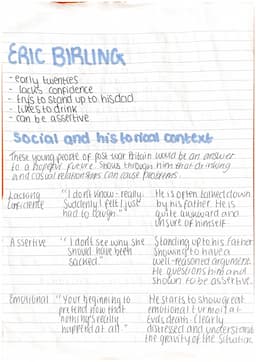 ERIC BIRLING
- early twenties
- lacks confidence
- trys to stand up to his dad
- likes to drink
- can be assertive
Social and historical context
These young people of post war Britain would be an answer
to a hopeful future. Shows through him that drinking
and casual relationships can cause problems.
Lacking confidence
"I don't know - really. Suddenly I felt I just had to laugh."
He is often talked down by his father. He is quite awkward and unsure of himself
Assertive
"I don't see why she should have been sacked."
Standing up to his father showing to have a well-reasoned argument. He questions him and shown to be assertive.
Emotional
"Your beginning to pretend now that nothing's really happened at all."
He starts to show great emotional turmoil at Eva's death - clearly distressed and understands the gravity of the situation